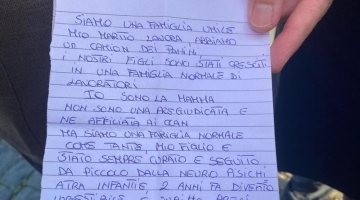 SIAMO UNA FAMIGLIA UMILE
MIO MARITO LAVORA, ABBIAMO
UN CAMION DEI PANINI,
I NOSTRI FIGLI SONO STATI CRESCIUTI
IN UNA FAMIGLIA NORMALE DI
LAVORATORI
IO SONO LA MAMMA
NON SONO UNA PREGIUDICATA E
NE AFFILIATA AI CLAN
MA SIAMO UNA FAMIGLIA NORMALE
COME TANTE, MIO FIGLIO E
STATO SEMPRE CURATO E SEGUITO,
DA PICCOLO DALLA NEURO PISICHI
ATRA INFANTIE, 2 ANNI FA DIVENTO